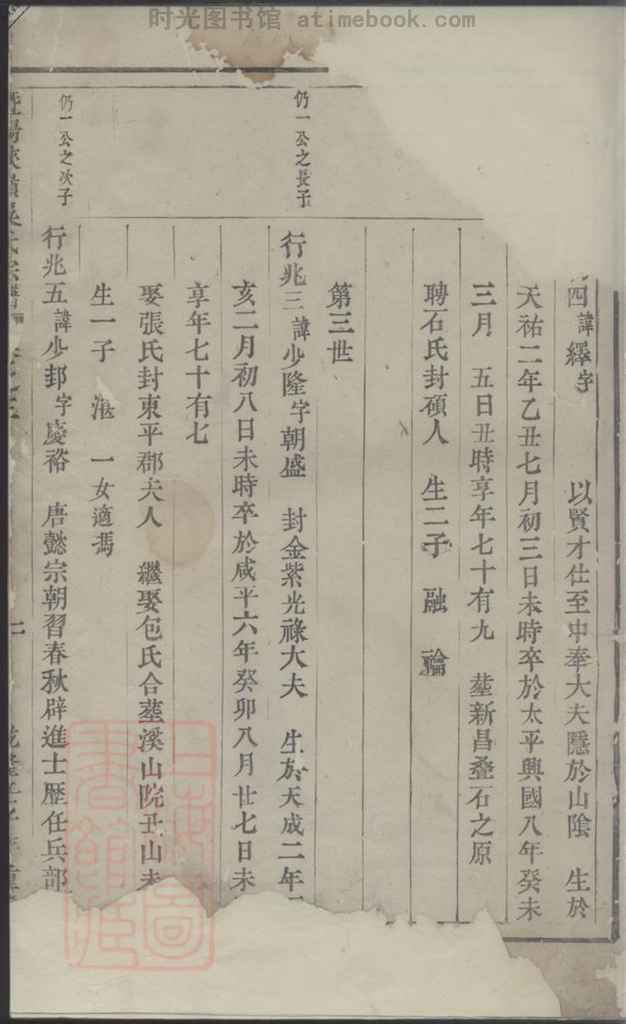 时光图书馆 atimebook.com
四 諱繹字 以賢才仕至中奉大夫隱於山陰 生於
天祐二年乙丑七月初三日未時卒於太平興國八年癸未
三月 五日丑時享年七十有九 塟新昌叠石之原
聘石氏封碩人 生二子 融 輪
第三世
仍一公之長子
行兆三諱少隆字朝盛 封金紫光祿大夫 生於天成二年
亥二月初八日未時卒於咸平六年癸卯八月廿七日未
享年七十有七
娶張氏封東平郡夫人 繼娶包氏合塟溪山院丑山未
生一子 一女適馮
仍一公之次子
行兆五諱少邽字慶裕 唐懿宗朝習春秋辟進士歷任兵部